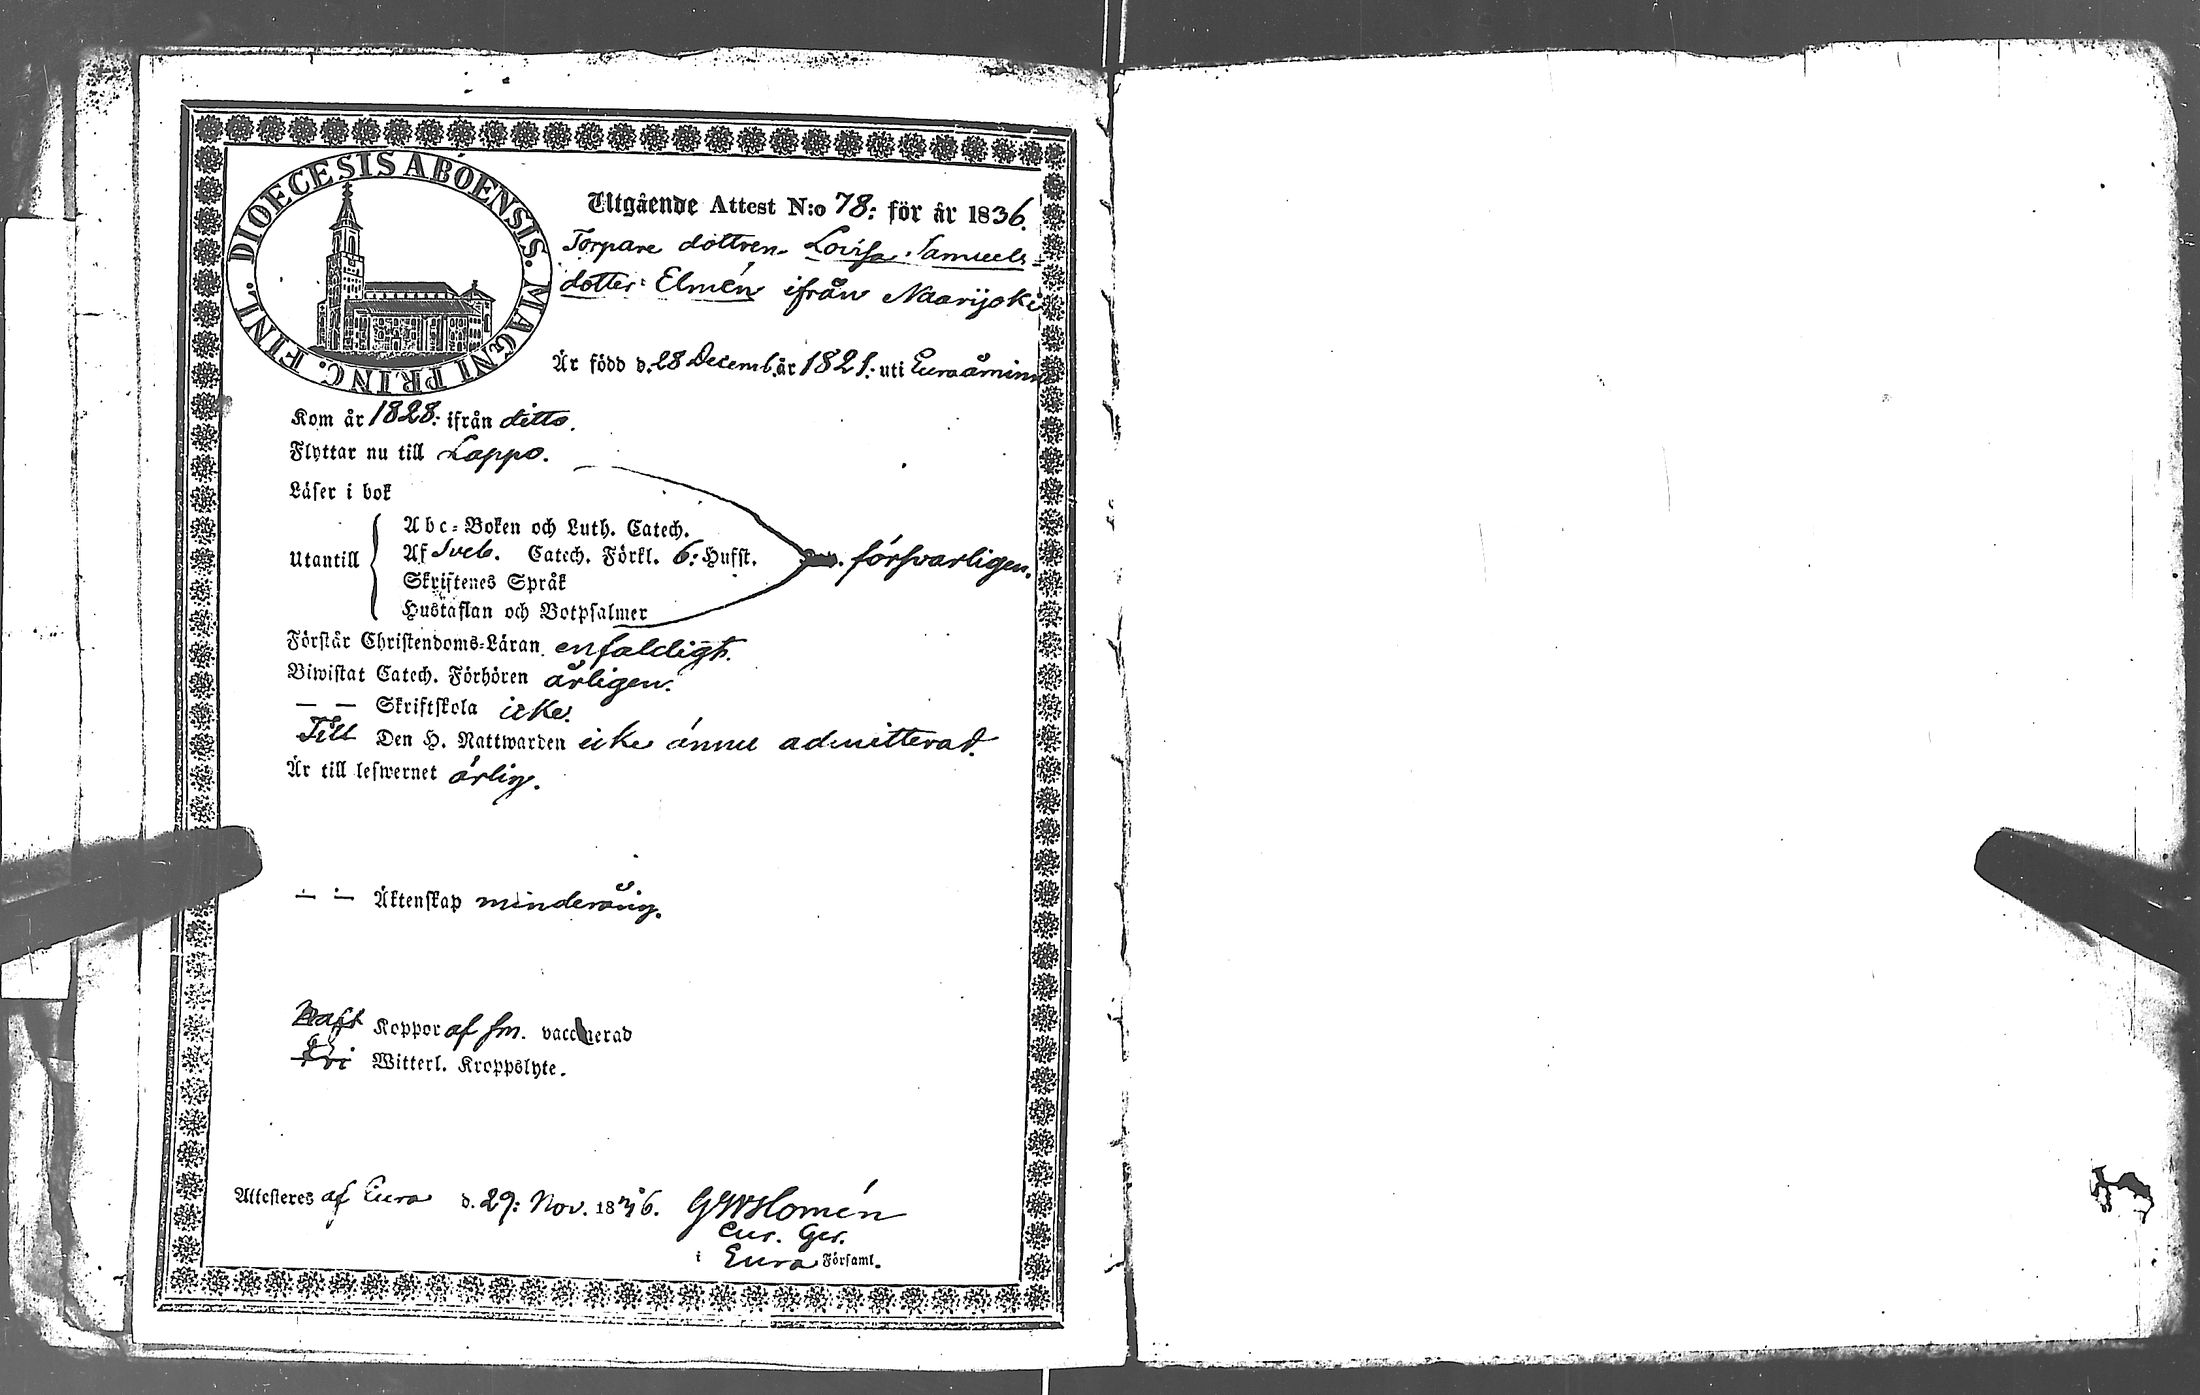 DIOECESIS ABOENSIS. MAGNI PRINC. FINL.
Utgående Attest N:o 78: för år 1836.
Torpare dottren Lovisa Samuels-
dotter Elmén ifrån Naarijoki
Är född d. 28 Decemb. år 1821: uti Euraåminn
Kom år 1828: ifrån ditto.
Flyttar nu till Lappo.
Läser i bok
Utantill
Abc-Boken och Luth. Catech.
Af Sveb. Catech. Förkl. 6: Hufst.
försvarligen.
Skriftenes Språk
Hustaflan och Botpsalmer
Förstår Christendoms-Läran enfaldigt.
Biwistat Catech. Förhören årligen.
— — Skriftskola icke.
Till Den H. Nattwarden icke ännu admitterad.
Är till lefwernet ärlig.
— — Äktenskap minderårig.
Haft Koppor af sm. vaccinerad
Fri Witterl. Kroppslyte.
Attesteres af Eura d. 29: Nov. 1836.
Cur. Ger.
i Eura Församl.